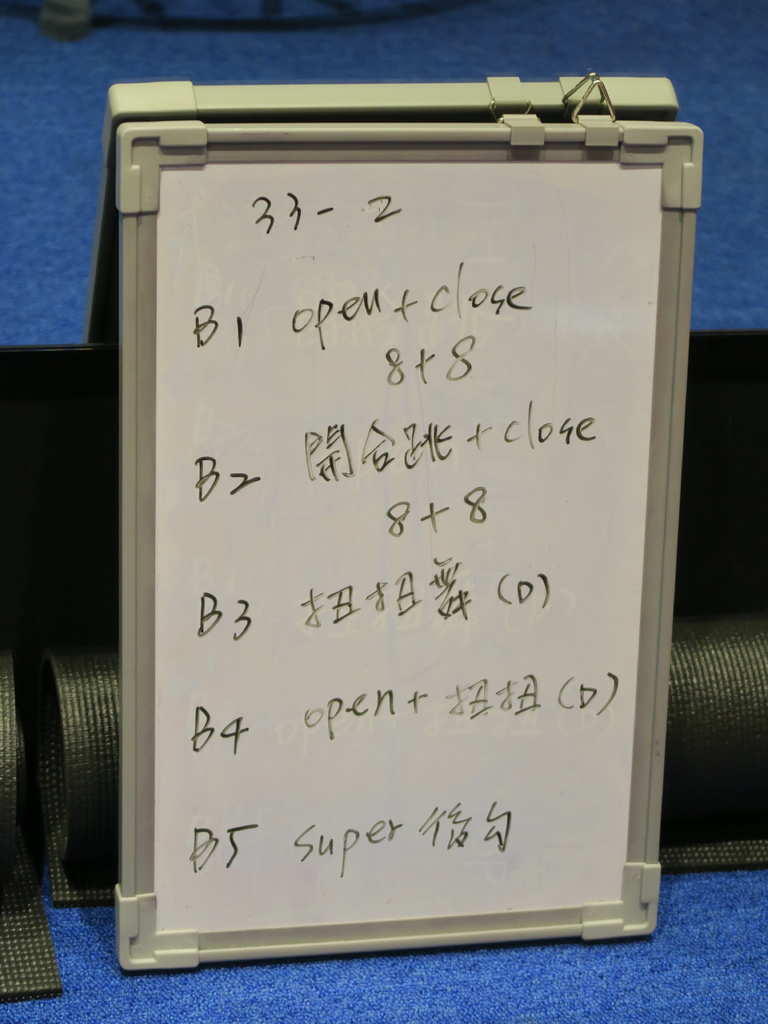 33-2
B1 open + close
8+8
B2 開合跳 + close
8+8
B3 扭扭舞 (D)
B4 open + 扭扭 (D)
B5 super 後勾